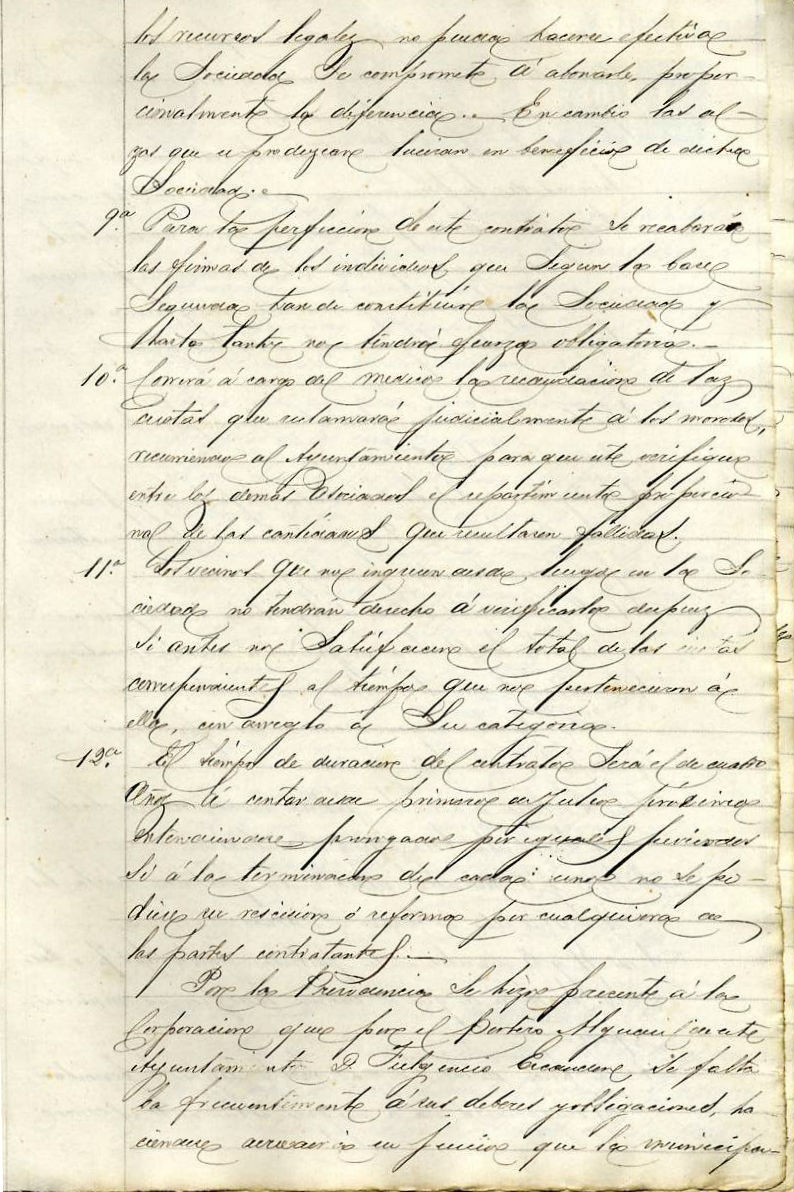 los recursos legales no pueda hacerse efectiva
la Sociedad se compromete á abonarle, propor-
cionalmente la diferencia.- En cambio las al-
zas que se produzcan lucirán en beneficio de dicha
Sociedad.-
9.ª Para la perfeccion de este contrato se recabarán
las firmas de los individuos, que segun la base
segunda han de constituir la Sociedad y
hasta tanto no tendrá fuerza obligatoria.-
10.ª Correrá á cargo del medico la recaudacion de las
cuotas que reclamará judicialmente á los morosos,
recurriendo al Ayuntamiento para que este verifique
entre los demas asociados el repartimiento proporcio-
nal de las cantidades que resultaren fallidas.
11.ª Los vecinos que no ingresen desde luego en la So-
ciedad no tendrán derecho á verificarlo despues
si antes no satisfacieren el total de las cuotas
correspondientes al tiempo que no pertenecieron á
ella, con arreglo á su categoria.
12.ª El tiempo de duracion del contrato será el de cuatro
años á contar desde primero de Julio próximo
entendiendose prorrogado por iguales periodos
si á la terminacion de cada uno no se pi-
diese su rescision ó reforma por cualquiera de
las partes contratantes.-
Por la Presidencia se hizo presente á la
Corporacion que por el Portero Alguacil de este
Ayuntamiento D. Fulgencio Escandon, se falta
ba frecuentemente á sus deberes y obligaciones, ha-
ciendose en juicio que la municipa-